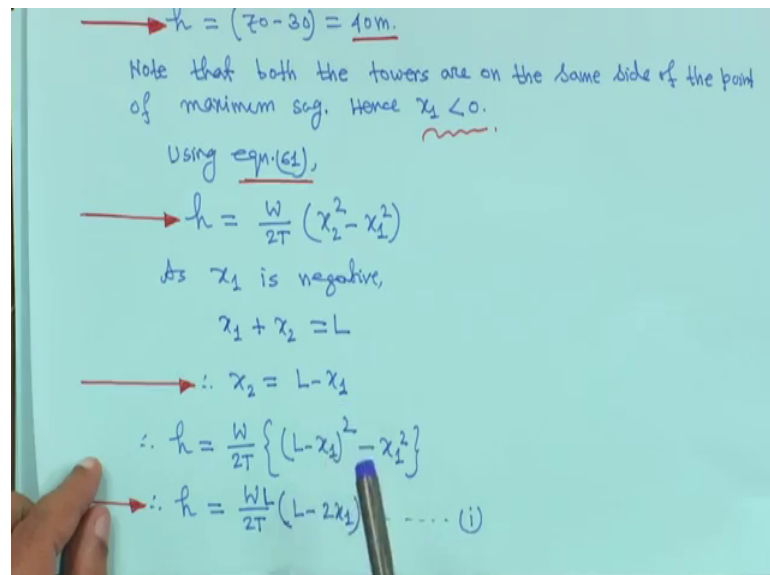 h = (70-30) = 40m.
Note that both the towers are on the same side of the point
of maximum sag. Hence x₁ <0.
Using eqn.(61),
h = W/2T (x₂² - x₁²)
As x₁ is negative,
x₁ + x₂ = L
∴ x₂ = L-x₁
∴ h = W/2T {(L-x₁)² - x₁²}
∴ h = WL/2T (L-2x₁) ...... (i)